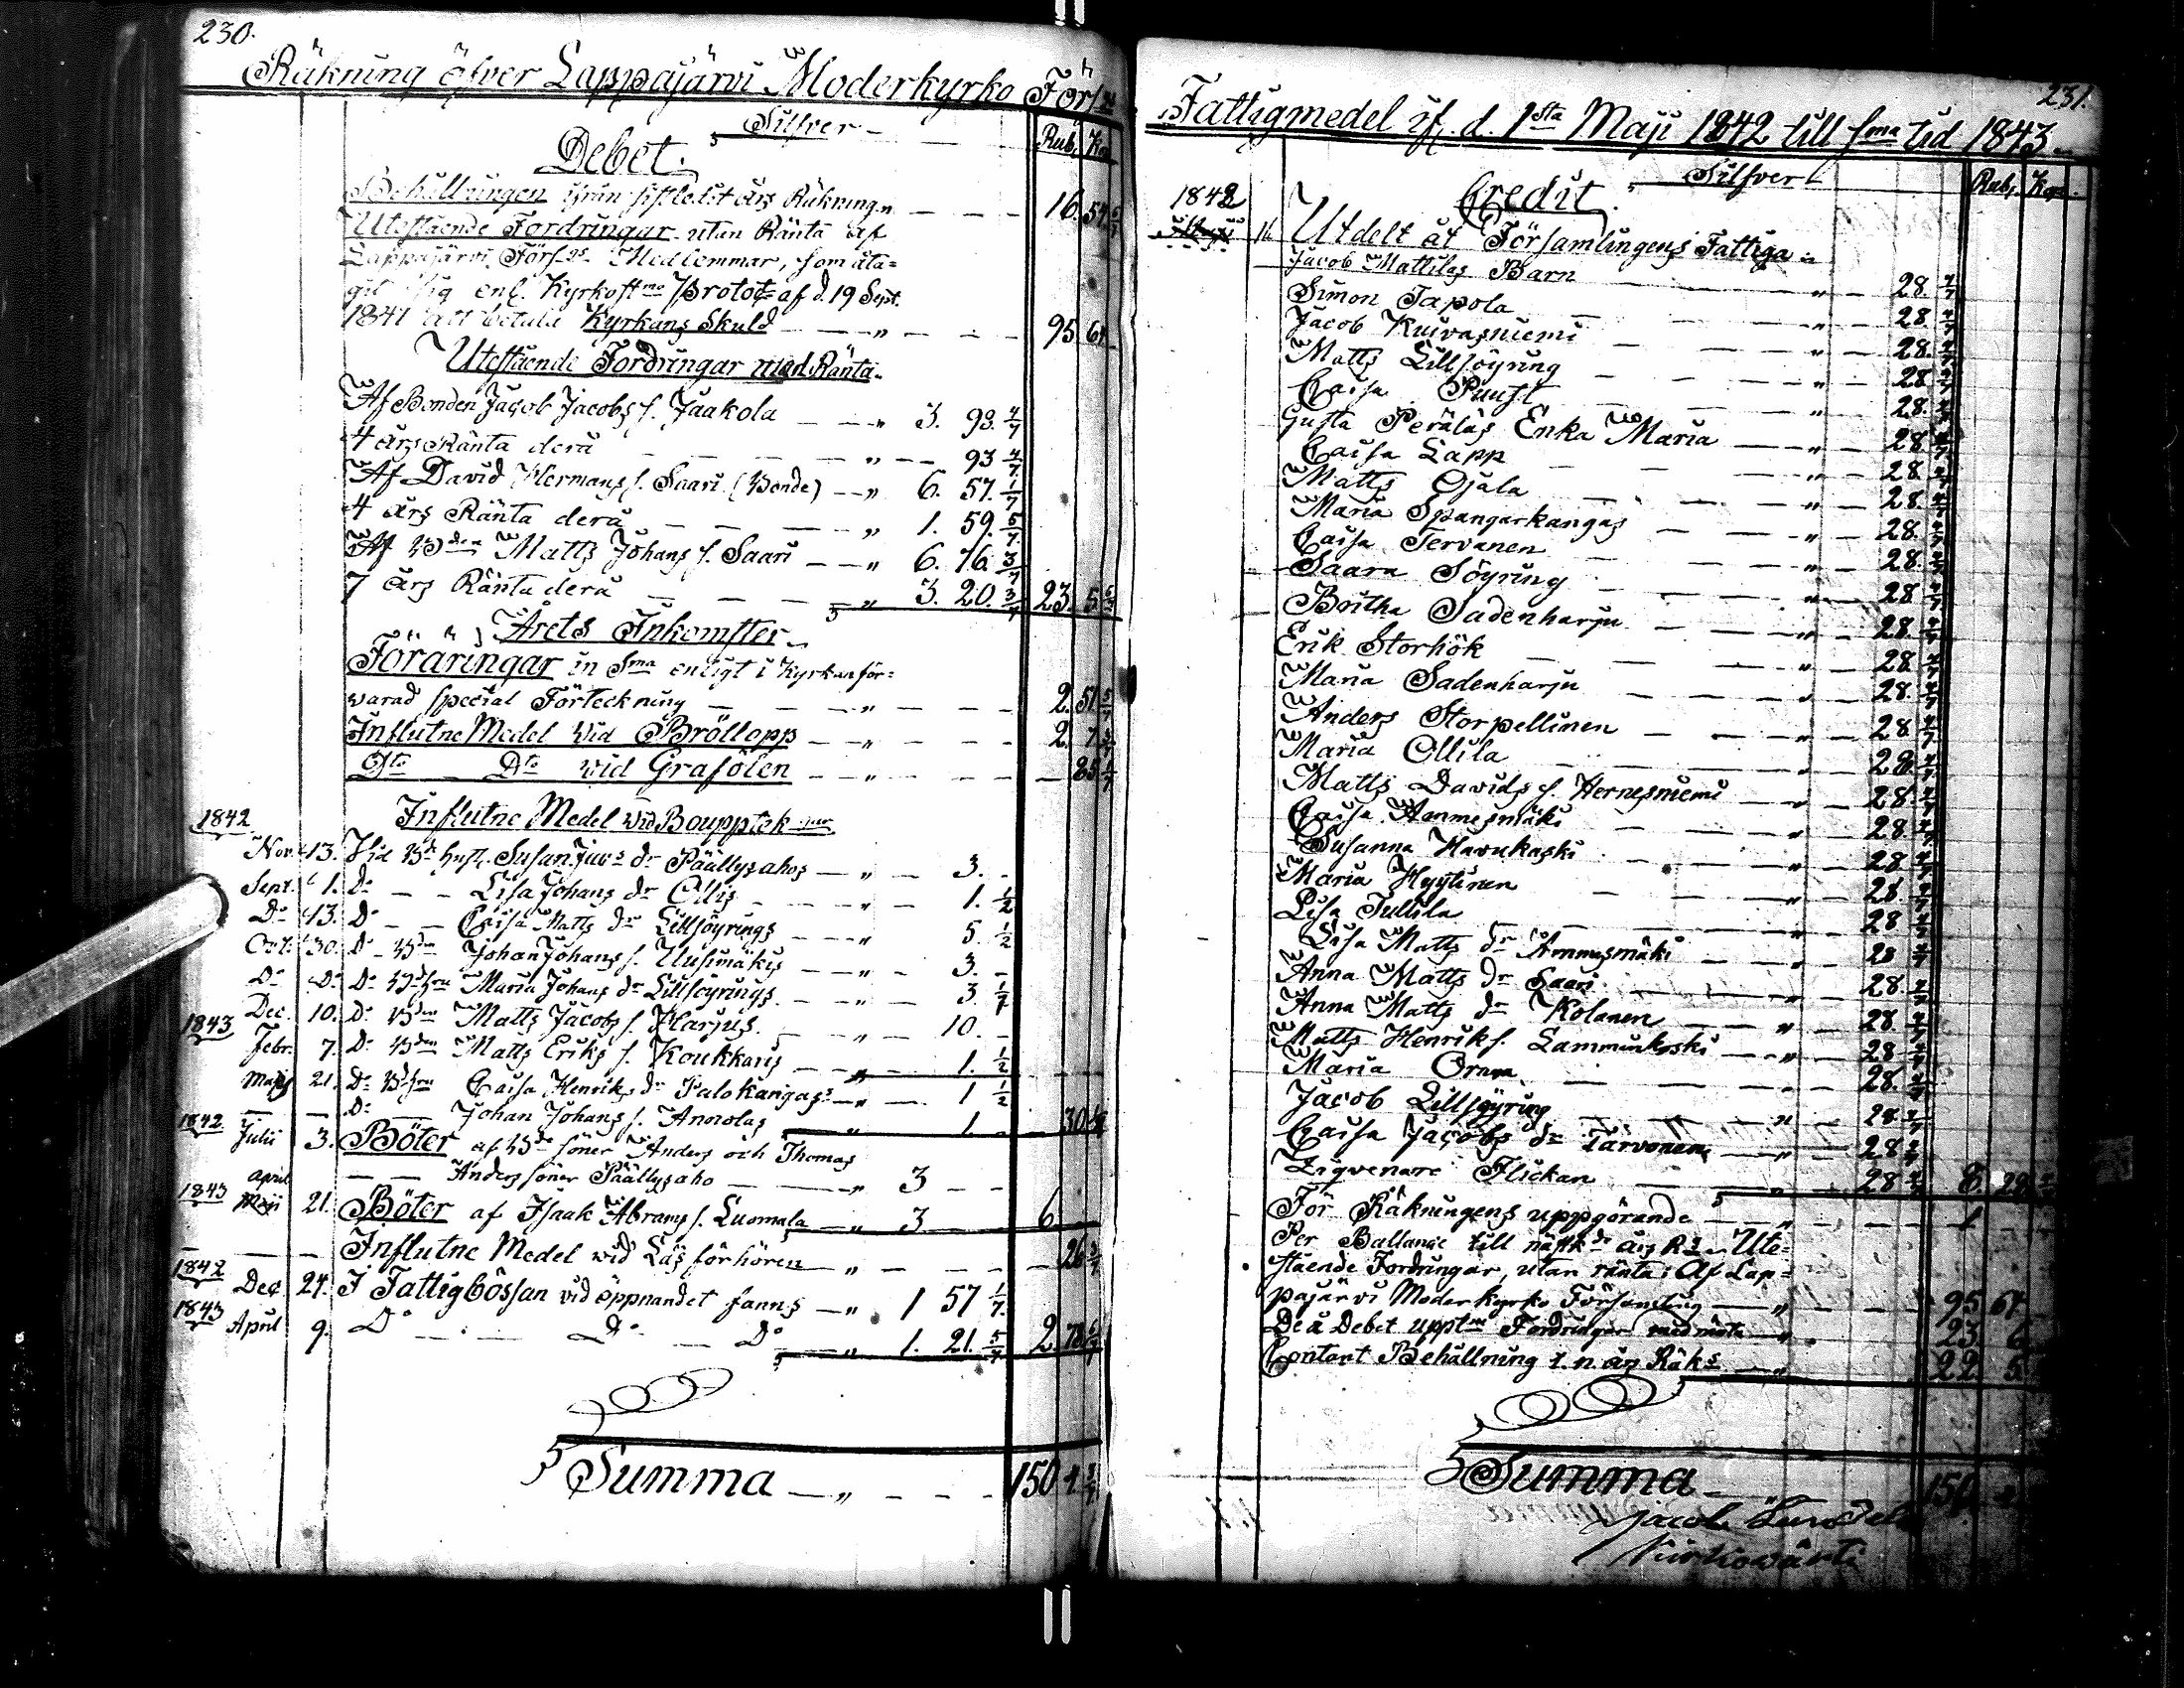 230.
Räkning öfver Lappajärvi Moderkyrko Förs
Silfver
Rub. Kop
Debet.
Behållningen ifrån sistledit års Räkning 16. 54
Utestående Fordringar utan Ränta af
Lappajärvi Förs Medlemmar, som åta=
git sig enl. Kyrkost Protoc af d. 19 Sept.
1841 att betala Kyrkans Skuld 95. 64
Utestående Fordringar med Ränta
Af Bonden Jacob Jacobs s. Jaakola 3. 93. 4/7
4 års Ränta derå 93 4/7
Af David Hermans s. Saari (Bonde) 6. 57. 1/7
4 års Ränta derå 1. 59. 5/7
Af Bden Matts Johans s. Saari 6. 76. 3/7
7 års Ränta derå 3. 20. 3/7 23. 5
Årets Inkomster
Föräringar in Sma enligt i Kyrkan för=
warad special Förteckning 2. 51 5/7
Influtne Medel vid Bröllopp 2. 7
Dto Dto vid Grafölen 85
Influtne Medel vid Boupptek
1842
Nov. 13. Vid Susan Päällysahos 3. -
Sept. 1. Do Lisa Johans dr Ollis 1. 1/2
Do 13. Do Caisa Matts dr Lillsöyrings 5. 1/2
Oct. 30. Do Bdn Johan Johans s. Uusimäkis 3. -
Do Do Do Maria Johans dr Lillsöyrings 3. 1/7
Dec. 10. Do Bden Matts Jacobs s. Harjus 10. -
1843
Febr. 7. Do Bden Matts Eriks s. Koukkaris 1. 1/2
Maji 21. Do Caisa Henriks dr Salokangas 1 1/2
Do Johan Johans s. Annolas 1. 30
1842
Julii 3. Böter af söner Anders och Thomas
Anders söner Päällysaho 3
1843 April
Maji 21. Böter af Isaak Abrams s. Luomala 3 6
Influtne Medel wid Läs förhören 26
1842 Dec 24. I Fattigbössan vid öppnandet fanns 1 57 1/7
1843 April 9. Do Do Do 1. 21. 5/7 2. 78 6/7
Summa 150
231.
Fattigmedel if. d. 1sta Maji 1842 till sma tid 1843
Silfver
Rub. Kop
Credit
1842
16 Utdelt åt Församlingens Fattiga
Jacob Mattilas Barn 28. 4/7
Simon Tapola 28. 4/7
Jacob Kuivasniemi 28. 4/7
Matts Lillsöyring 28. 4/7
Caisa Puust 28. 4/7
Gusta Peräläs Enka Maria 28. 4/7
Caisa Lapp 28. 4/7
Matts Ojala 28. 4/7
Maria Spangarkangas 28. 4/7
Caisa Tervanen 28. 4/7
Saara Söyring 28. 4/7
Britha Sadenharju 28. 4/7
Erik Storhök 28. 4/7
Maria Sadenharju 28. 4/7
Anders Storpellinen 28. 4/7
Maria Ollila 28. 4/7
Matts Davids s. Hernesniemi 28. 4/7
Caisa Ammesmäki 28. 4/7
Susanna Havukaski 28. 4/7
Maria Hyytinen 28. 4/7
Lisa Tullila 28 4/7
Lisa Matts dr Ammesmäki 28 4/7
Anna Matts dr Saari 28. 4/7
Anna Matts dr Kolanen 28. 4/7
Matts Henrik s. Lamminkoski 28 4/7
Maria 28. 4/7
Jacob Lillsöyring 28 4/7
Caisa Jacobs dr Tärvonen 28 4/7
Flickan 28 4/7 8. 28
För Räkningens uppgörande 1
Per Ballance till näst års Rg Ute=
stående Fordringar, utan ränta: Af Lap=
pajärvi Moderkyrko Församling 95 64
De å Debet uppt Fordringar med ränta 23 6
Contant Behållning t. n. års Räk 22 5
Summa 150
Jacob